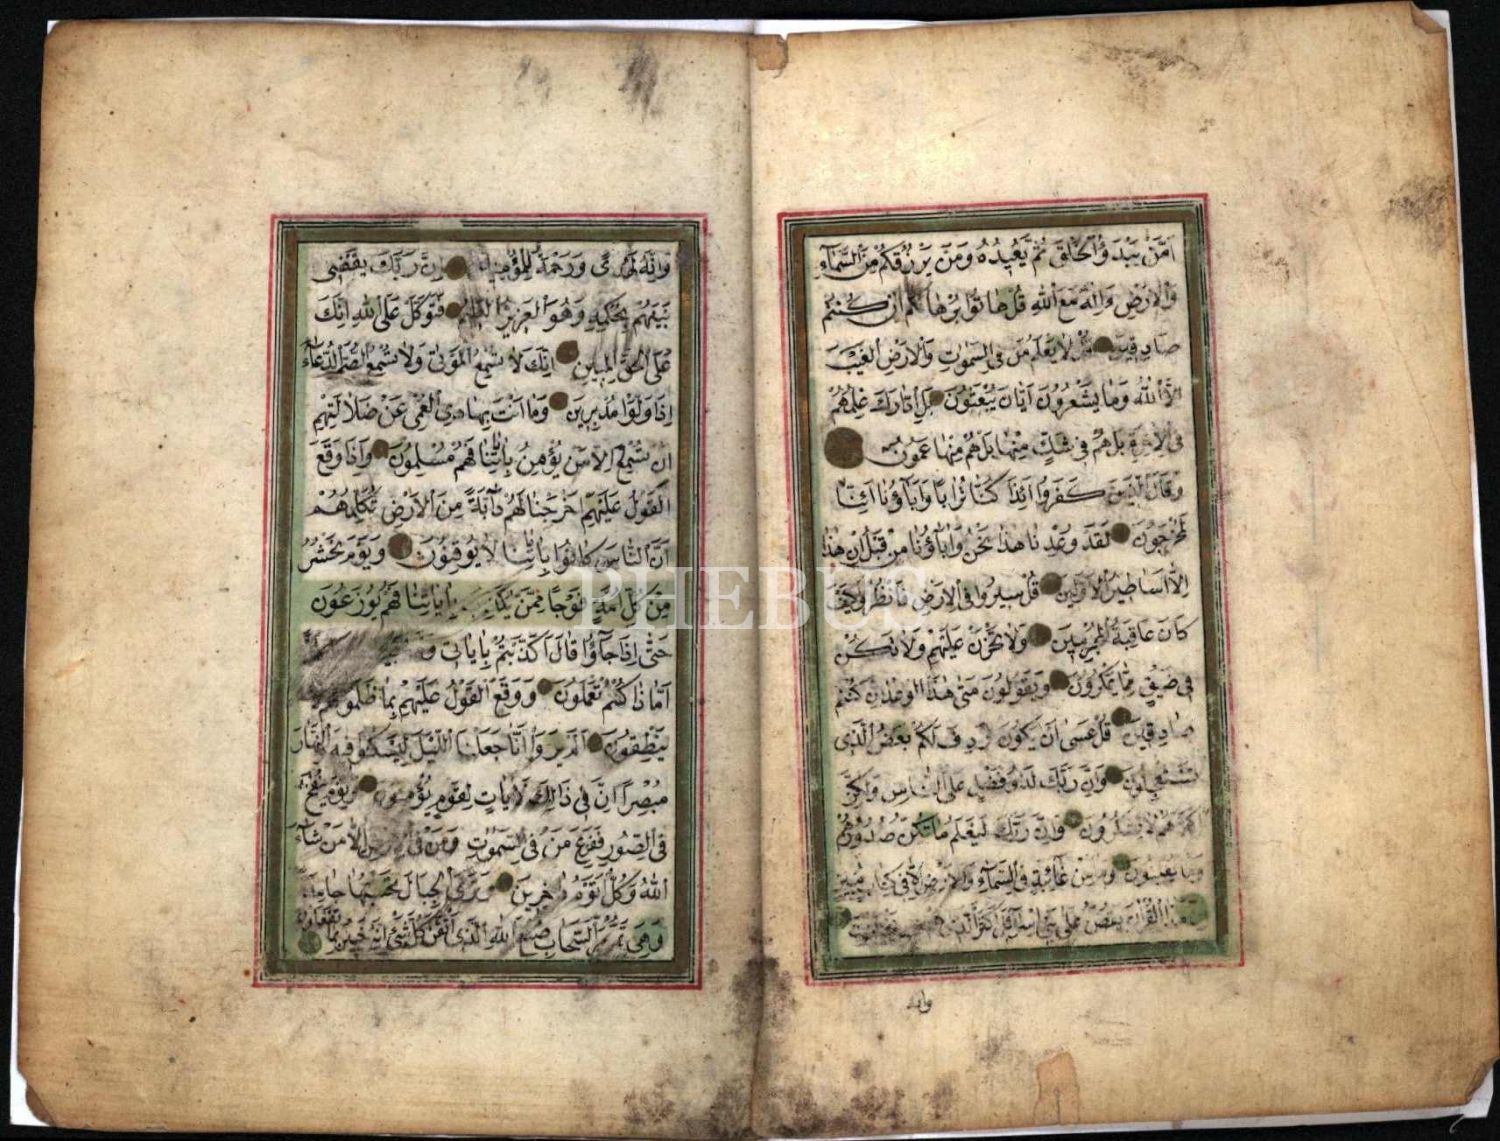 امن يبدؤا الخلق ثم يعيده ومن يرزقكم من السماء
والارض ءاله مع الله قل هاتوا برهانكم ان كنتم
صادقين قل لا يعلم من في السموات والارض الغيب
الا الله وما يشعرون ايان يبعثون بل ادارك علمهم
في الاخرة بل هم في شك منها بل هم منها عمون
وقال الذين كفروا ائذا كنا ترابا واباؤنا ائنا
لمخرجون لقد وعدنا هذا نحن واباؤنا من قبل ان هذا
الا اساطير الاولين قل سيروا في الارض فانظروا كيف
كان عاقبة المجرمين ولا تحزن عليهم ولا تكن
في ضيق مما يمكرون ويقولون متى هذا الوعد ان كنتم
صادقين قل عسى ان يكون ردف لكم بعض الذي
تستعجلون وان ربك لذو فضل على الناس ولكن
اكثرهم لا يشكرون وان ربك ليعلم ما تكن صدورهم
وما يعلنون وما من غائبة في السماء والارض الا في كتاب مبين
هذا القران يقص على بني اسرائل اكثر الذي هم فيه
وانه
وانه لهدى ورحمة للمؤمنين ان ربك يقضي
بينهم بحكمه وهو العزيز العليم فتوكل على الله انك
على الحق المبين انك لا تسمع الموتى ولا تسمع الصم الدعاء
اذا ولوا مدبرين وما انت بهادي العمي عن ضلالتهم
ان تسمع الا من يؤمن باياتنا فهم مسلمون واذا وقع
القول عليهم اخرجنا لهم دابة من الارض تكلمهم
ان الناس كانوا باياتنا لا يوقنون ويوم نحشر
من كل امة فوجا ممن يكذب باياتنا فهم يوزعون
حتى اذا جاؤا قال اكذبتم باياتي و
اماذا كنتم تعملون ووقع القول عليهم بما ظلموا فهم لا
ينطقون الم يروا انا جعلنا الليل ليسكنوا فيه والنهار
مبصرا ان في ذلك لايات لقوم يؤمنون ويوم ينفخ
في الصور ففزع من في السموات ومن في الارض الا من شاء
الله وكل اتوه داخرين وترى الجبال تحسبها جامدة
وهي تمر مر السحاب صنع الله الذي اتقن كل شئ انه خبير بما تفعلون
PHEBUS